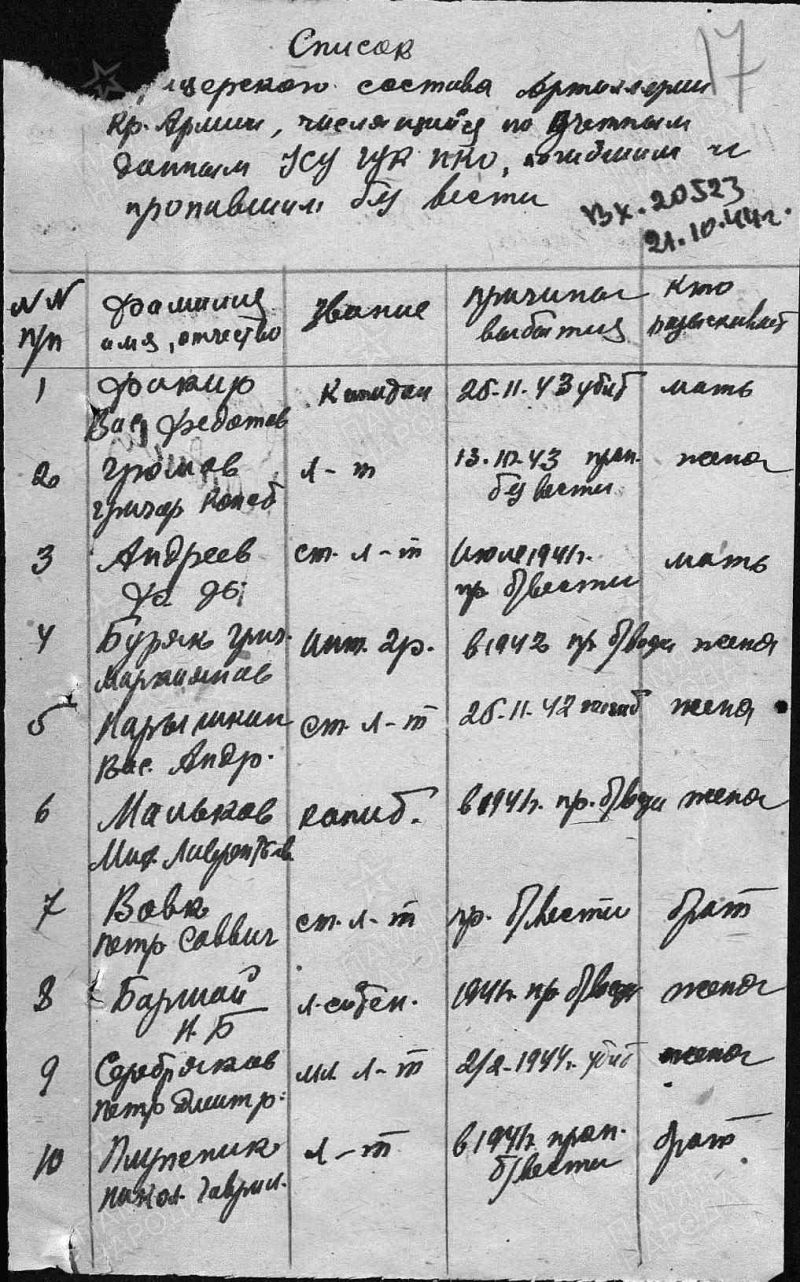 Список
17
церского состава Артиллерии
Кр. Армии, числящийся по Учетным
данным УСУ ГУК НКО, погибшим и
пропавшим б/ вести
Вх. 20523
21.10.44г.
NN п/п | Фамилия имя, отчество | Звание | причина выбытия | Кто разыскивает
1 | Вас Федотов | Капитан | 25-11-43 убит | мать
2 | л-т | 13. 43 проп. без вести | жена
3 | Андреев | ст. л-т | Июле 1941г. пр. б/вести | мать
4 | Буряк Григ. | Инт. 2р. | в 1942 пр. б/вести | жена
5 | Нарышкин Вас. Андр. | ст л-т | 25-11-42 погиб | жена
6 | Мальков Мих Лаврентьев | капит. | в 1941г. пр. б/вести | жена
7 | Вовк Петр Саввич | ст. л-т | пр. б/вести | брат
8 | И. Б | 1941г. пр б/вести | жена
9 | Серебряков Петр Дмитр. | мл л-т | 2/2-1944г. убит | жена
10 | Гаврил. | л-т | в 1941г. проп. б/вести | брат